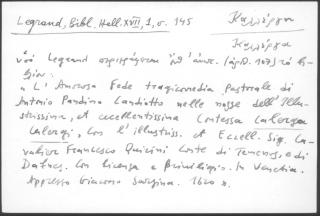 Legrand, Bibl. Hell. XVII, 1, σ. 145 Καλλέργη
Καλέργα
ὑπὸ Legrand περιγράφεται ὑπ' (ἀριθ. 107) τὸ
"L'Amorosa Fede tragicomedia Pastorale di
Antonio Pandimo Candiotto nelle nozze dell'Illu-
strissima, et eccellentissima Contessa Calerga
Calergi, con l'illustriss. et Eccell. Sig. Ca-
valier Francesco Quirini Conte di Temenos, e di
Dafnes. Con licenza e Privilegio. In Venetia.
Appresso Giacomo Sarzina. 1620".